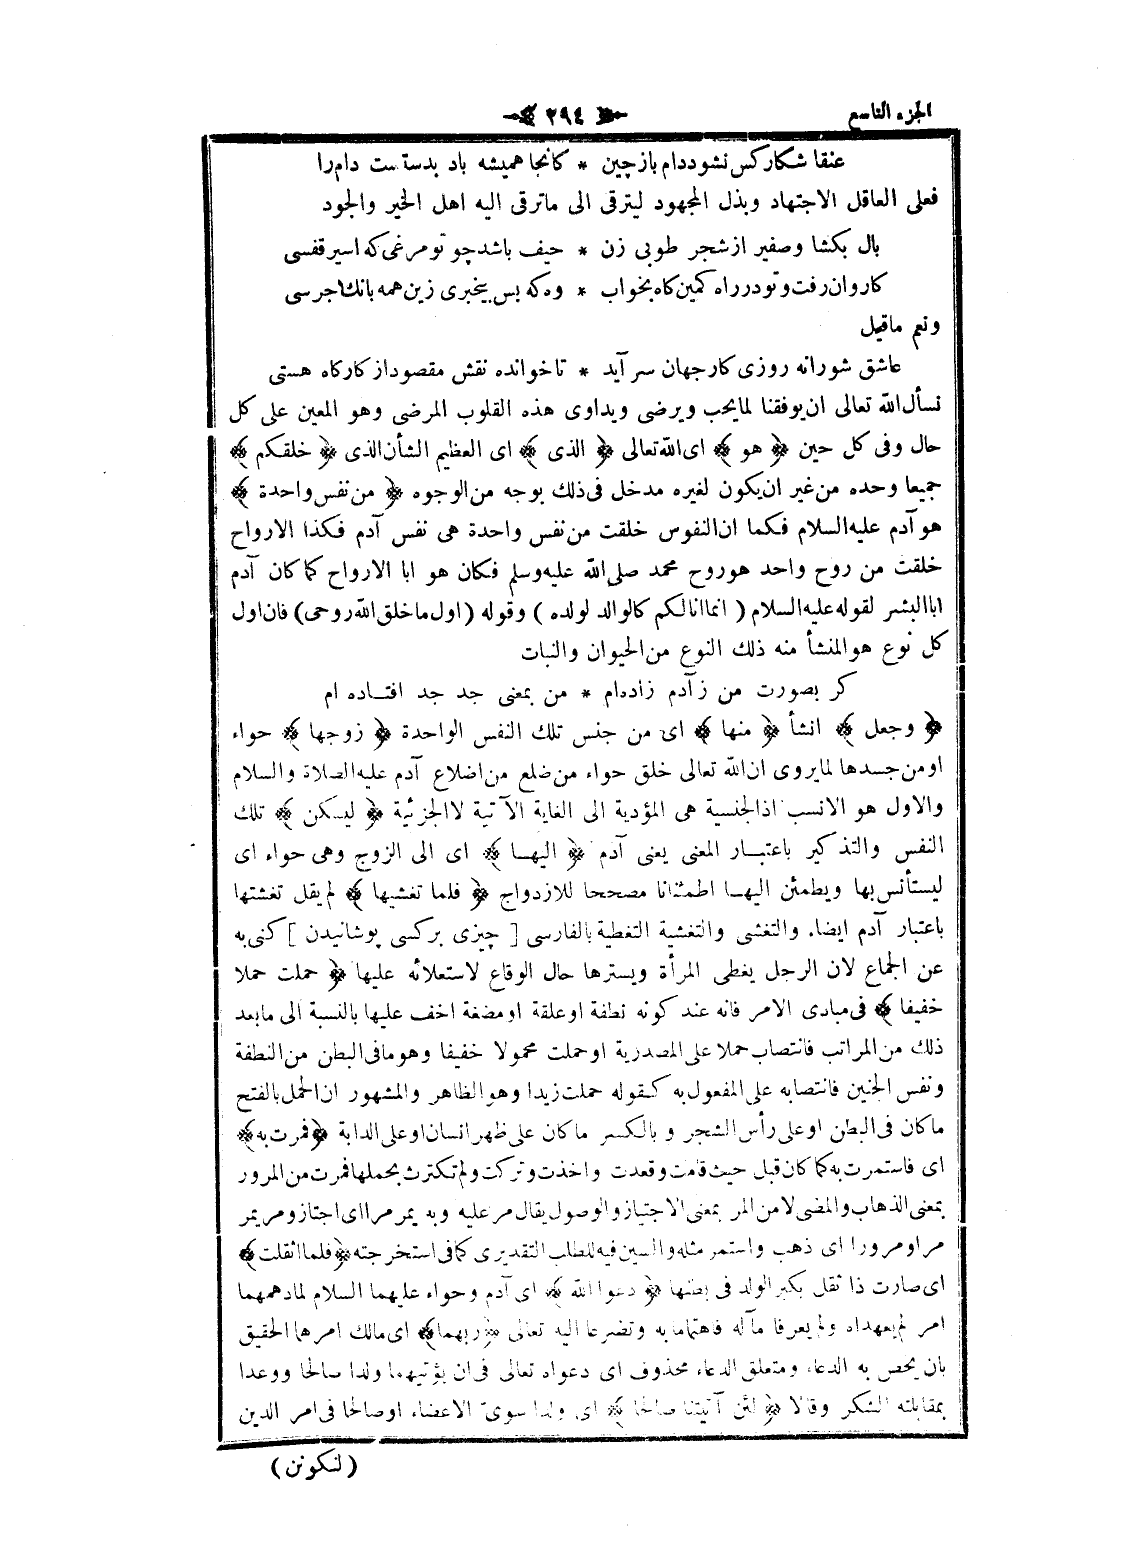 الجزء التاسع
﴿ ٢٩٤ ﴾
عنقا شكاركس نشوددام بازچين * كانجا هميشه باد بدستاست دام را
فعلى العاقل الاجتهاد وبذل المجهود ليترقى الى ماترقى اليه اهل الخير والجود
بال بكشا وصفير از شجر طوبى زن * حيف باشدچو تومرغى كه اسيرقفسى
كاروان رفت وتودرراه كمين كاه بخواب * وه كه بس بيخبرى زين همه بانك جرسى
ونعم ماقيل
عاشق شورانه روزى كارجهان سر آيد * تاخوانده نقش مقصود از كاركاه هستى
نسأل الله تعالى ان يوفقنا لما يحب ويرضى ويداوى هذه القلوب المرضى وهو المعين على كل
حال وفى كل حين ﴿ هو ﴾ اى الله تعالى ﴿ الذى ﴾ اى العظيم الشأن الذى ﴿ خلقكم ﴾
جميعا وحده من غير ان يكون لغيره مدخل فى ذلك بوجه من الوجوه ﴿ من نفس واحدة ﴾
هو آدم عليه السلام فكما ان النفوس خلقت من نفس واحدة هى نفس آدم فكذا الارواح
خلقت من روح واحد هو روح محمد صلى الله عليه وسلم فكان هو ابا الارواح كما كان آدم
ابا البشر لقوله عليه السلام ( انما انا لكم كالوالد لولده ) وقوله ( اول ما خلق الله روحى ) فان اول
كل نوع هو المنشأ منه ذلك النوع من الحيوان والنبات
كر بصورت من ز آدم زاده ام * من بمعنى جد جد افتاده ام
﴿ وجعل ﴾ انشأ ﴿ منها ﴾ اى من جنس تلك النفس الواحدة ﴿ زوجها ﴾ حواء
او من جسدها لما يروى ان الله تعالى خلق حواء من ضلع من اضلاع آدم عليه الصلاة والسلام
والاول هو الانسب اذ الجنسية هى المؤدية الى الغاية الآتية لا الجزئية ﴿ ليسكن ﴾ تلك
النفس والتذكير باعتبار المعنى يعنى آدم ﴿ اليها ﴾ اى الى الزوج وهى حواء اى
ليستأنس بها ويطمئن اليها اطمئنانا مصححا للازدواج ﴿ فلما تغشيها ﴾ لم يقل تغشتها
باعتبار آدم ايضا. والتغشى والتغشية التغطية بالفارسى [ چيزى بركسى پوشانيدن ] كنى به
عن الجماع لان الرجل يغطى المرأة ويسترها حال الوقاع لاستعلائه عليها ﴿ حملت حملا
خفيفا ﴾ فى مبادى الامر فانه عند كونه نطفة او علقة او مضغة اخف عليها بالنسبة الى ما بعد
ذلك من المراتب فانتصاب حملا على المصدرية او حملت محمولا خفيفا وهو ما فى البطن من النطفة
ونفس الجنين فانتصابه على المفعول به كقوله حملت زيدا وهو الظاهر والمشهور ان الحمل بالفتح
ما كان فى البطن او على رأس الشجر و بالكسر ما كان على ظهر انسان او على الدابة ﴿ فمرت به ﴾
اى فاستمرت به كما كان قبل حيث قامت وقعدت واخذت وتركت ولم تكترث بحملها فمرت من المرور
بمعنى الذهاب والمضى لا من المر بمعنى الاجتياز والوصول يقال مر عليه وبه يمر مرا اى اجتاز ومر يمر
مرا ومرورا اى ذهب واستمر مثله والسين فيه للطلب التقديرى كما فى استخرجته ﴿ فلما اثقلت ﴾
اى صارت ذا ثقل بكبر الولد فى بطنها ﴿ دعوا الله ﴾ اى آدم وحواء عليهما السلام لما دهمهما
امر لم يعهداه ولم يعرفا مآله فاهتما به وتضرعا اليه تعالى ﴿ ربهما ﴾ اى مالك امرهما الحقيق
بان يخص به الدعاء ومتعلق الدعاء محذوف اى دعواه تعالى فى ان يؤتيهما ولدا صالحا ووعدا
بمقابلته الشكر وقالا ﴿ لئن آتيتنا صالحا ﴾ اى ولدا سوى الاعضاء او صالحا فى امر الدين
( لنكونن )